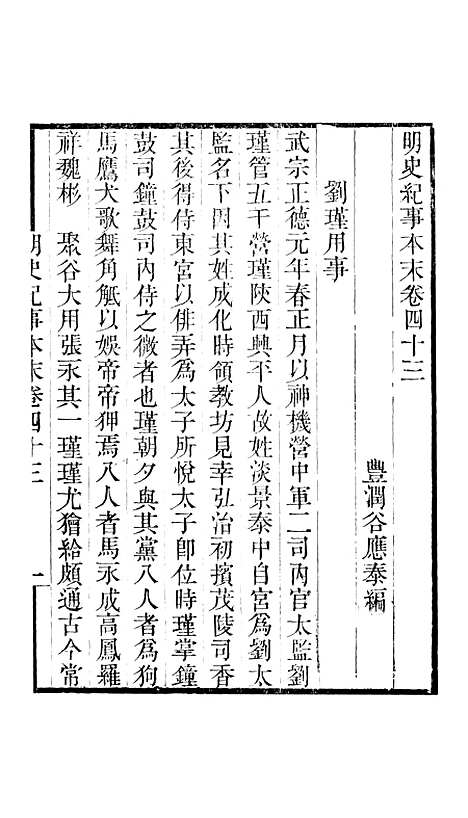 明史紀事本末卷四十三
豐潤谷應泰編
劉瑾用事
武宗正德元年春正月以神機營中軍二司內官太監劉
瑾管五千營瑾陝西興平人故姓淡景泰中自宮爲劉太
監名下因其姓成化時領教坊見幸弘治初擯茂陵司香
其後得侍東宮以俳弄爲太子所悅太子卽位時瑾掌鐘
鼓司鐘鼓司內侍之微者也瑾朝夕與其黨八人者爲狗
馬鷹犬歌舞角觝以娛帝帝狎焉八人者馬永成高鳳羅
祥魏彬 聚谷大用張永其一瑾瑾尤獪給頗通古今常
明史紀事本末卷四十三 一